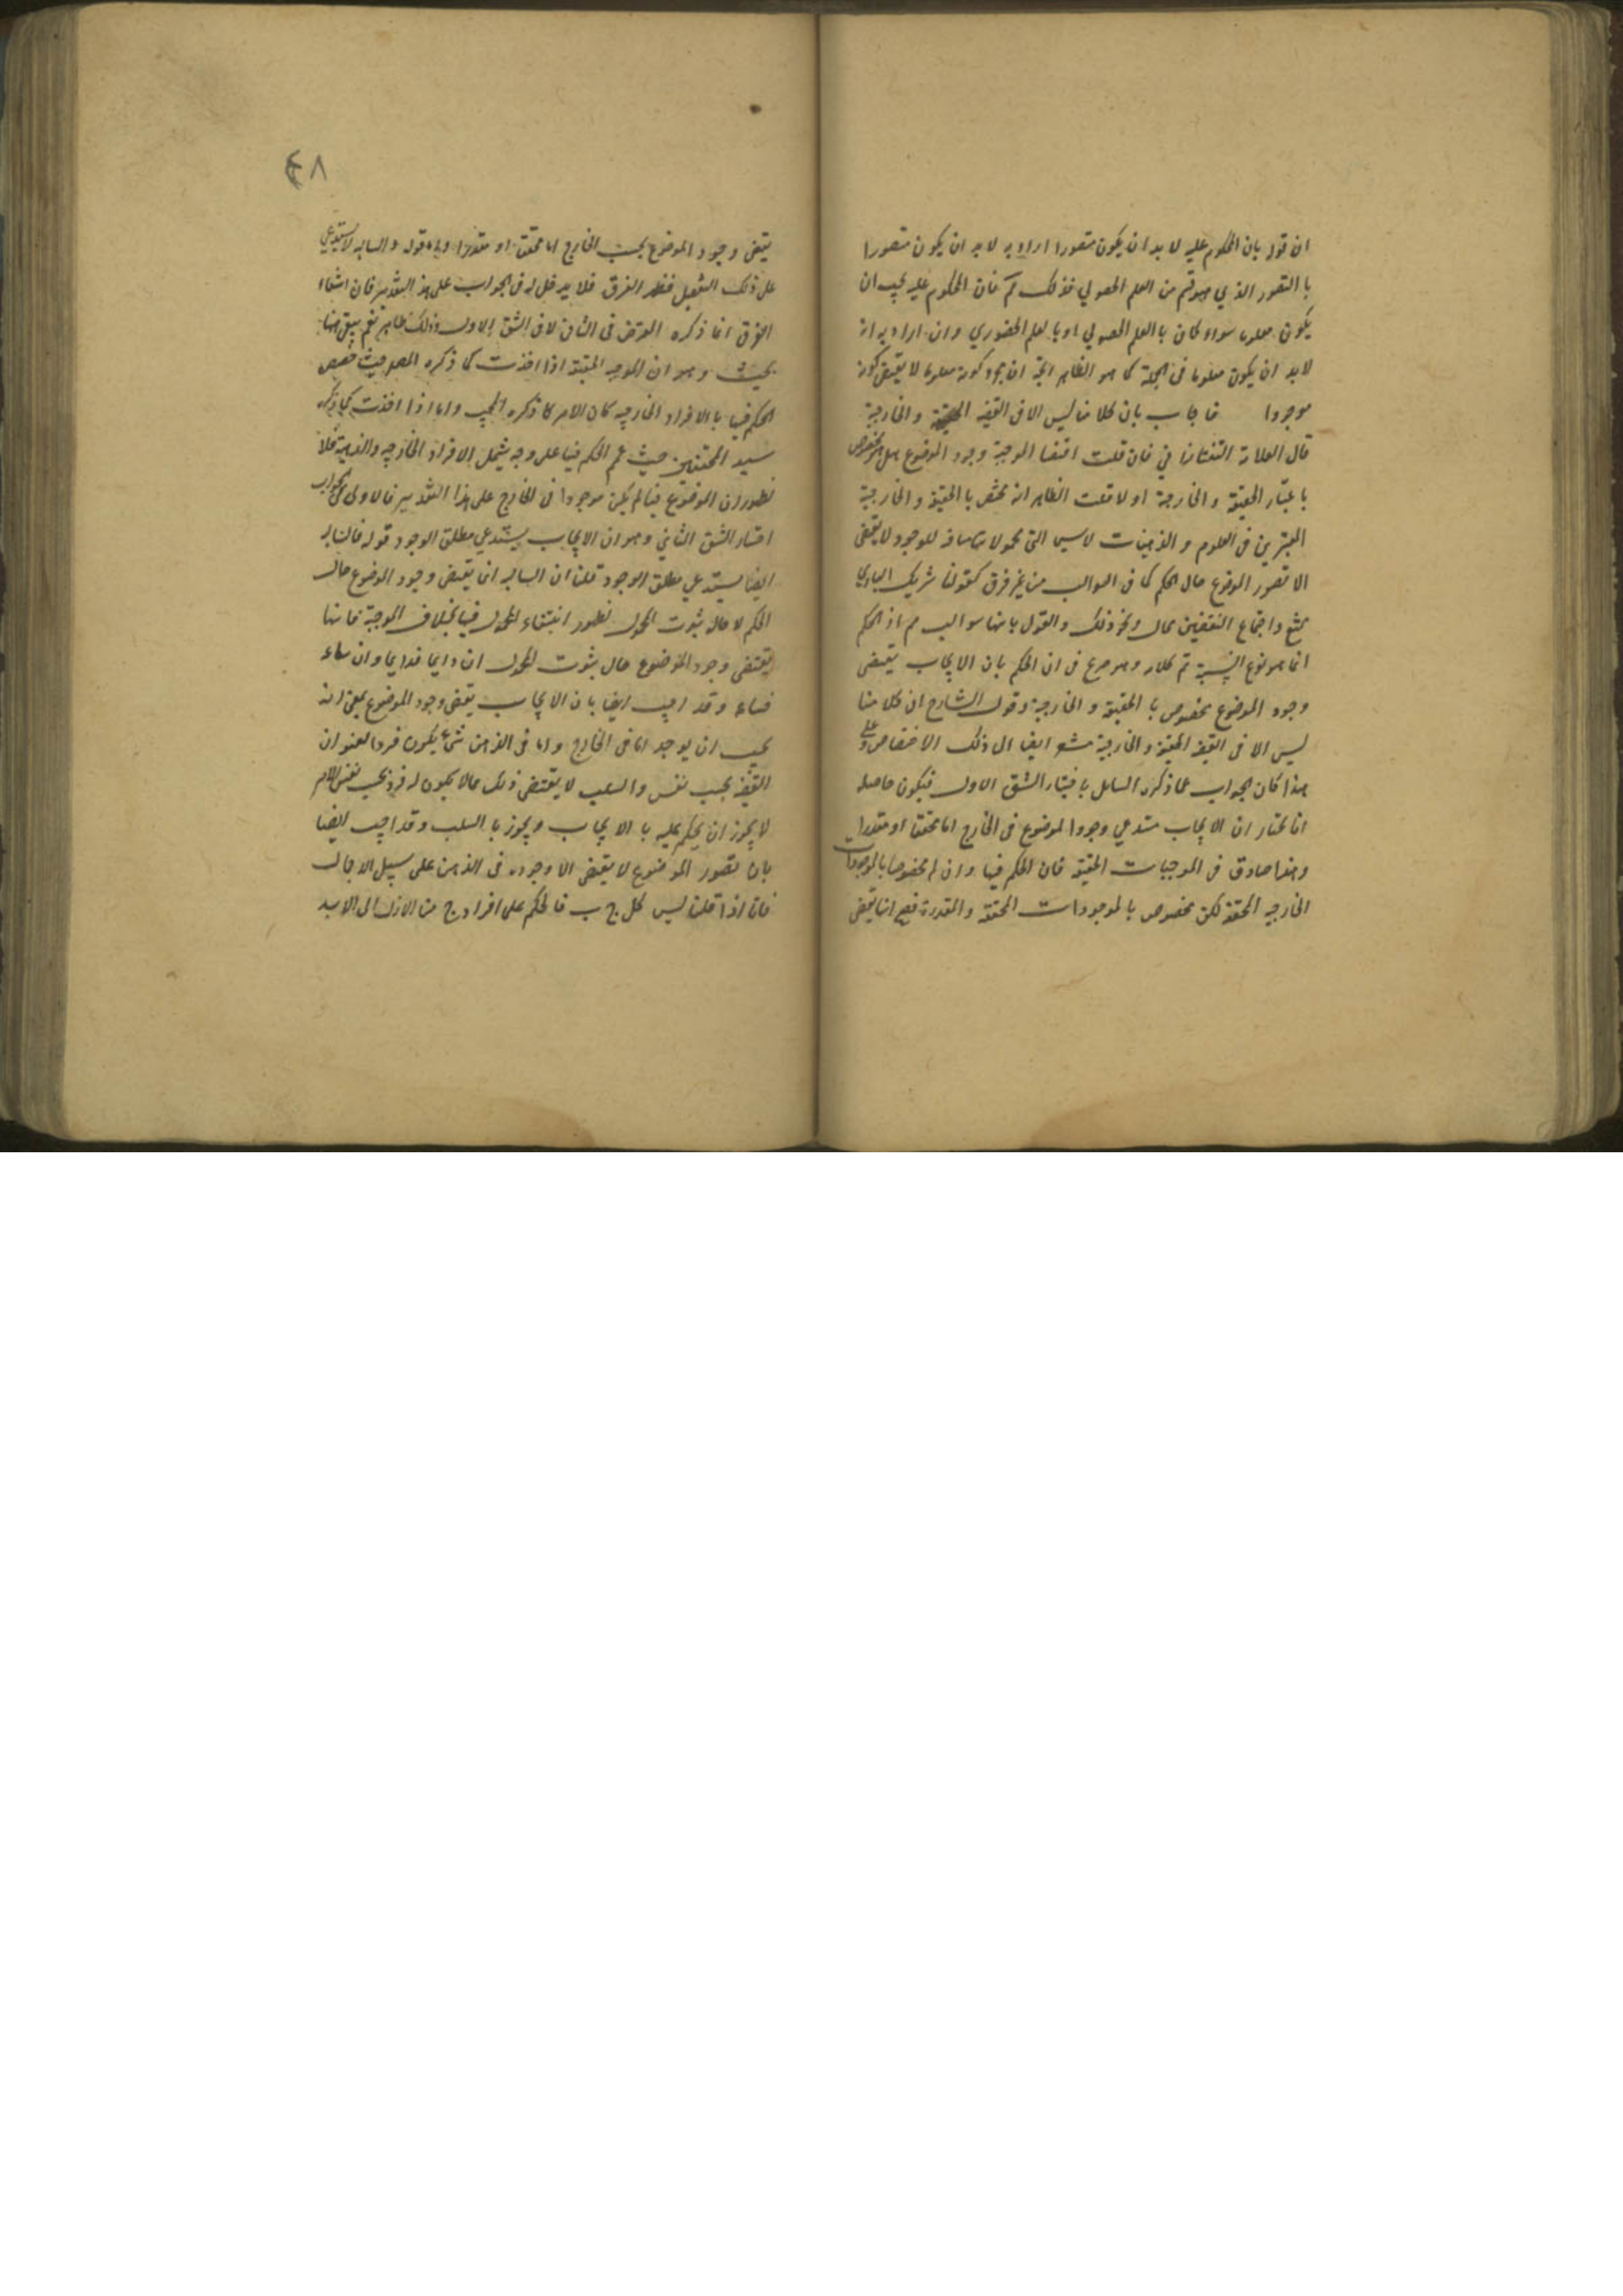 ان قوله بان المحكوم عليه لا بد ان يكون متصورا ان اراد به لا بد ان يكون متصورا
با التصور الذي هو قسم من العلم الحصولي فذلك مم فان المحكوم عليه يجب ان
يكون معلوما سواء كان با العلم الحصولي او با لعلم الحضوري وان اراد به انه
لا بد ان يكون معلوما في الجملة كما هو الظاهر اتجه ان مجرد كونه معلوما لا يقتضي كونه
موجودا فاجاب بان كلامنا ليس الا في القضية الحقيقية والخارجية
قال العلامة التفتازاني فان قلت اقتضا الموجبة وجود الموضوع هل هو مخصوص
با عتبار الحقيقة والخارجية اولا قلت الظاهر انه مختص با الحقيقة والخارجية
المعتبرتين في العلوم والذهنيات لا سيما التي محمولاتها منافية للوجود لا يقتضي
الا تصور الموضوع حال الحكم كما في السوالب من غير فرق كقولنا شريك الباري
ممتنع واجتماع النقيضين محال ونحو ذلك والقول بانها سوالب مم اذ الحكم
انما هو بوقوع النسبة تم كلامه وهو صريح في ان الحكم بان الايجاب يقتضي
وجود الموضوع مخصوص با الحقيقة والخارجية وقول الشارح ان كلامنا
ليس الا في القضية الحقيقة والخارجية مشعر ايضا الى ذلك الاختصاص وعلى
هذا كان الجواب عما ذكره السائل با ختيار الشق الاول فيكون حاصله
انا نختار ان الايجاب يستدعي وجود الموضوع في الخارج اما محققا او مقدرا
وهذا صادق في الموجبات الحقيقة فان الحكم فيها وان لم مخصوصا بالموجودات
الخارجية المحققة لكن مخصوص با لموجودات المحققة والمقدرة فصح انها يقتضي
٤٨
يقتضي وجود الموضوع بحسب الخارج اما محققا او مقدرا واما قوله والسالبة لا يستدعي
على ذلك التفصيل فظهر الفرق فلا يدخل له في الجواب على هذا التقدير فان انتفاء
الفرق انما ذكره المعترض في الثاني لا في الشق الاول وذلك ظاهر نعم يبقى ههنا
بحث وهو ان الموجبة الحقيقة اذا اخذت كما ذكره المص حيث خصص
الحكم فيها با الافراد الخارجية كان الامر كما ذكره المجيب واما اذا اخذت كما ذكره
سيد المحققين حيث عمم الحكم فيها على وجه يشمل الافراد الخارجية والذهنية فلا
لظهور ان الموضوع فيها لم يكن موجودا في الخارج على هذا التقدير فالاولى في الجواب
اختيار الشق الثاني وهو ان الايجاب يستدعي مطلق الوجود قوله فالسالبة
ايضا يستدعي مطلق الوجود قلنا ان السالبة انما يقتضي وجود الموضوع حال
الحكم لا حال ثبوت المحمول لظهور انتفاء المحمول فيها بخلاف الموجبة فانها
يقتضي وجود الموضوع حال ثبوت المحمول ان دايما فدايما وان ساعة
فساعة وقد اجيب ايضا بان الايجاب يقتضي وجود الموضوع بمعنى انه
يجب ان يوجد اما في الخارج واما في الذهن شيء يكون فردا لعنوان
القضية بحسب نفس والسلب لا يقتضي ذلك فما لا يكون له فرد بحسب نفس الامر
لا يجوز ان يحكم عليه با الايجاب ويجوز با السلب وقد اجيب ايضا
بان تصور الموضوع لا يقتضي الا وجوده في الذهن على سبيل الاجمال
فانا اذا قلنا ليس كل ج ب فالحكم على افراد ج من الازل الى الابد